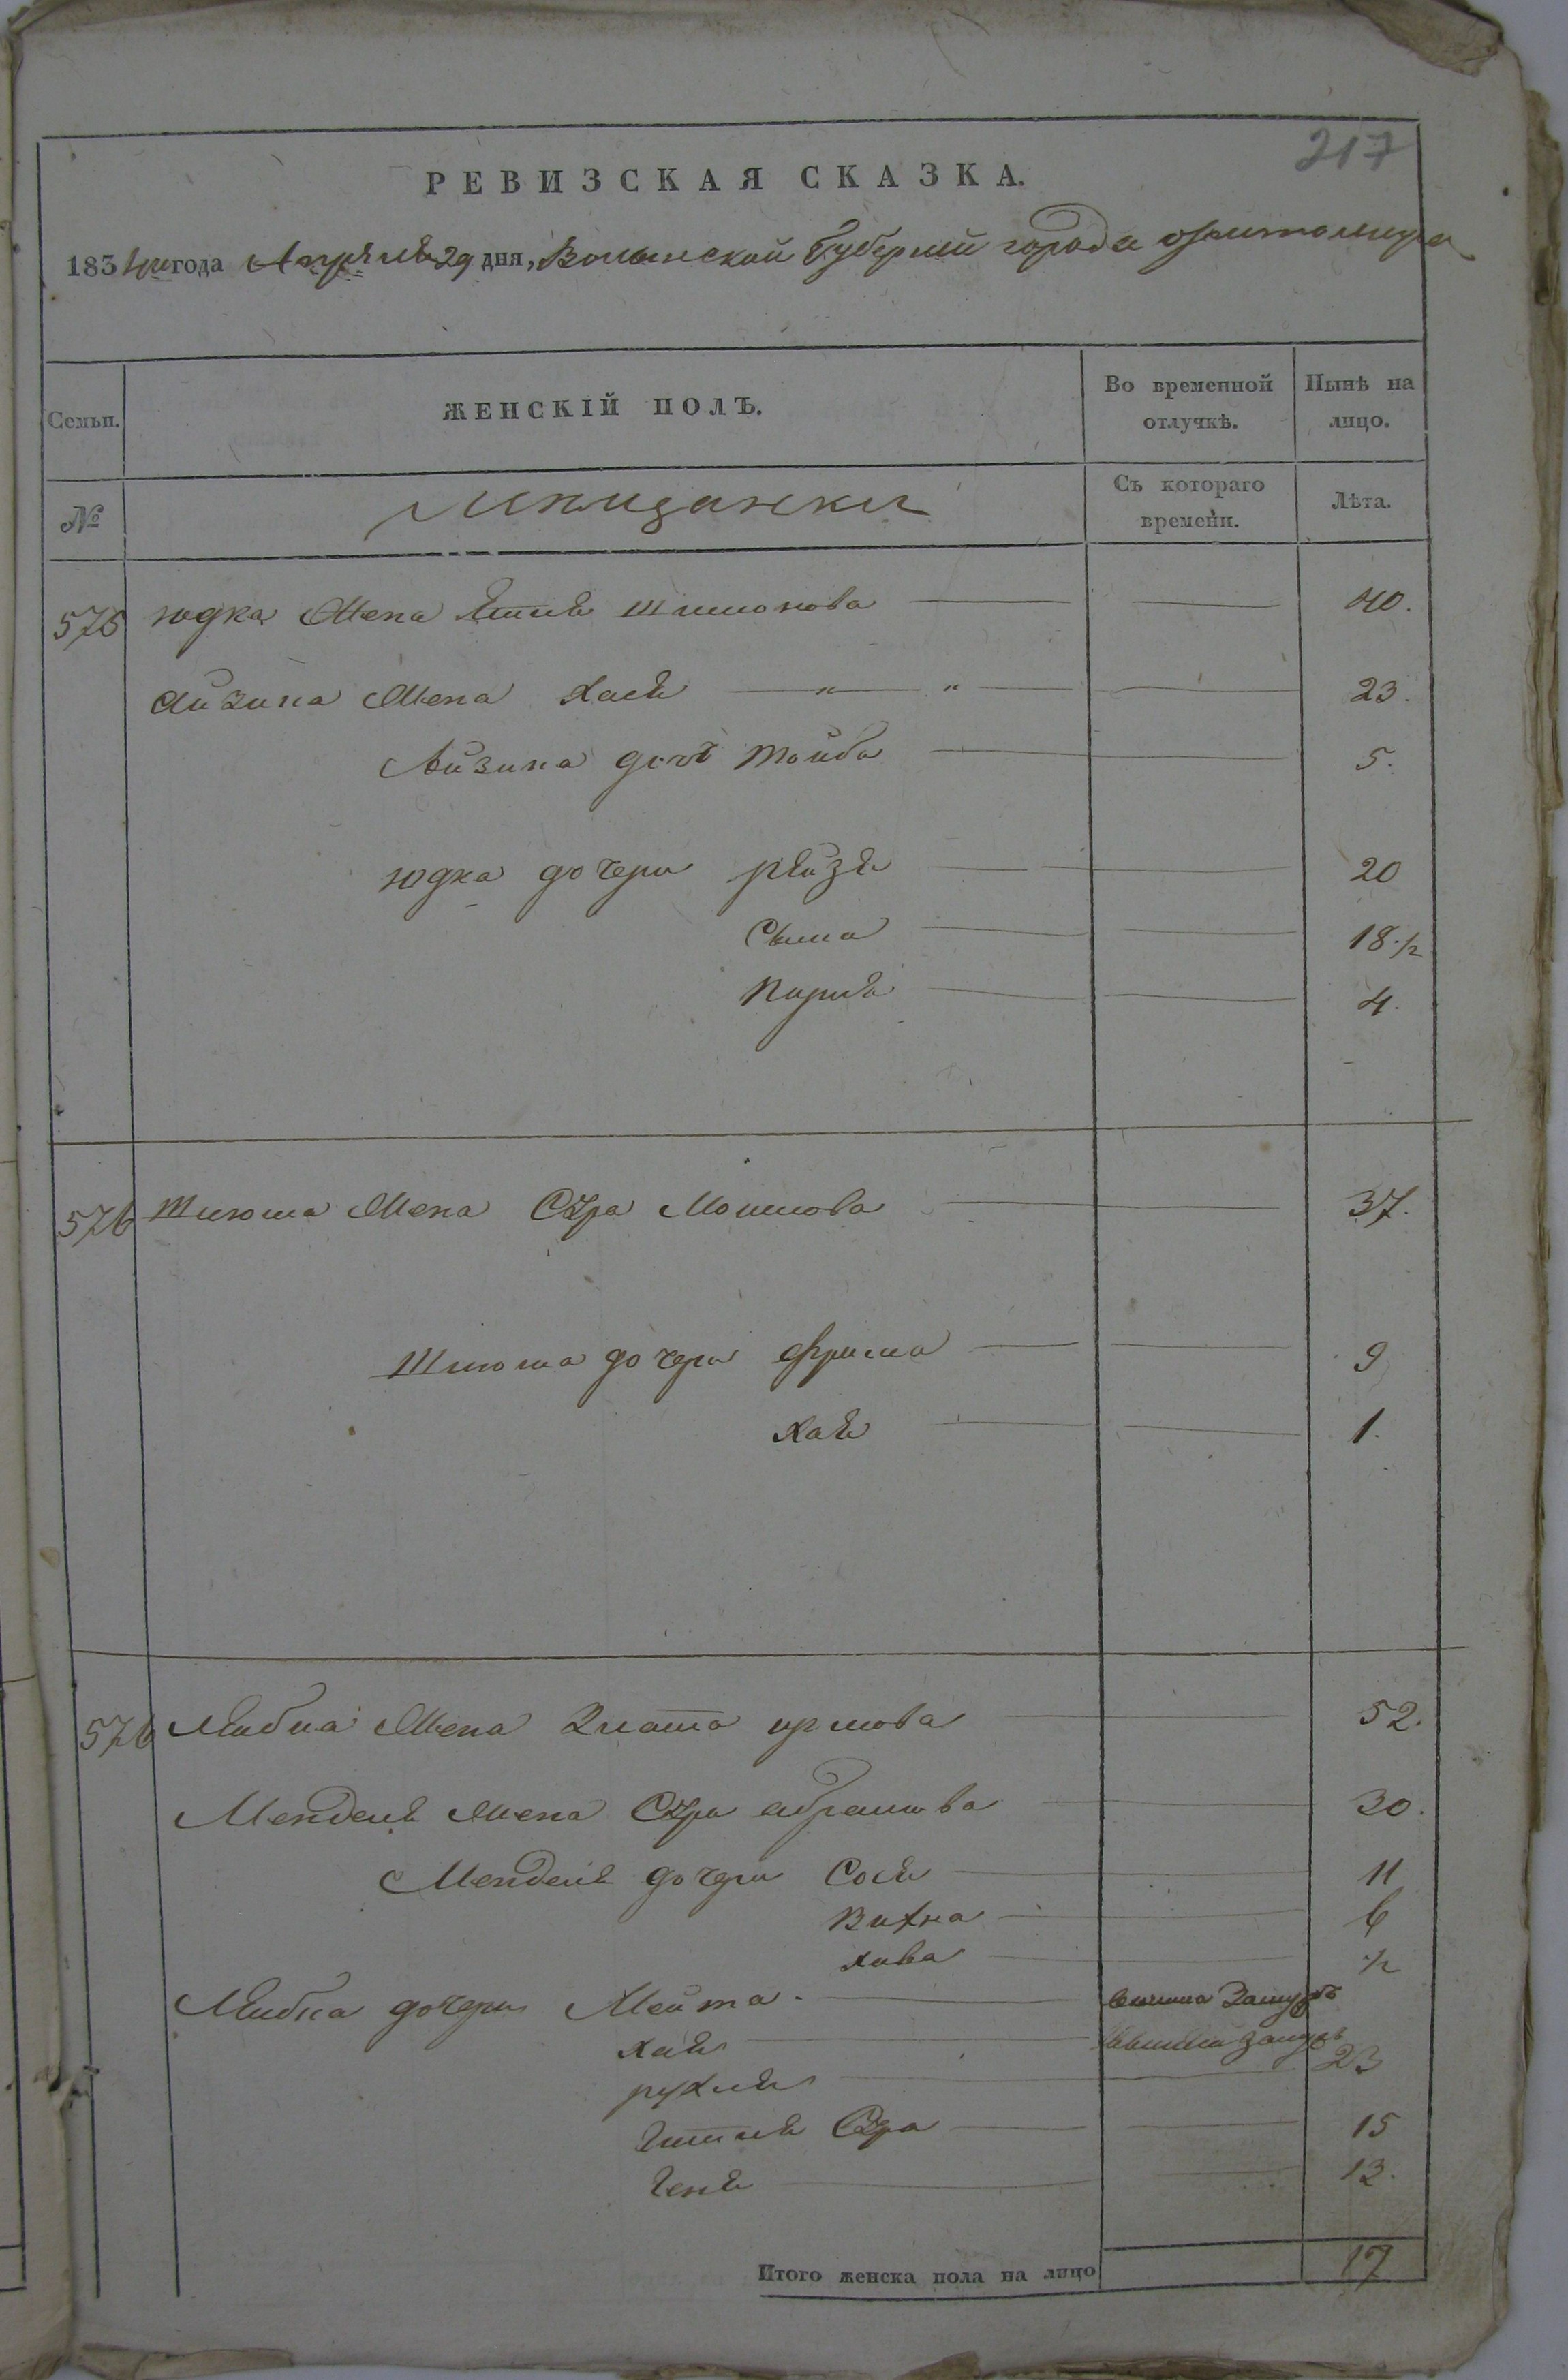 217
РЕВИЗСКАЯ СКАЗКА.
1834го года Апреля 29 дня, Волынской Губернии города Житомира
Семьи. ЖЕНСКІЙ ПОЛЪ. Во временной отлучкѣ. Нынѣ на лицо.
№ Мещанки Съ котораго времени. Лѣта.
575 юдка Жена Этля Шимонова 40.
Айзика Жена Хая " " 23.
Айзика дочь Тойба 5.
юдка дочери рейзя 20
Сыма 18 ½
Перля 4.
576 Шлиома Жена Сура Мошкова 37.
Шлиома дочери фрима 9
Хая 1.
576 Лейбка Жена Злата 52.
Менделя Жена Сура абрамова 30.
Менделя дочери Сося 11
Вихна 6
Хава ½
Лейбка дочери Мейта вышла Замужъ
Хая вышла замужъ
рухля 23
Гитля Сура 15
Геня 13.
Итого женска пола на лицо 17